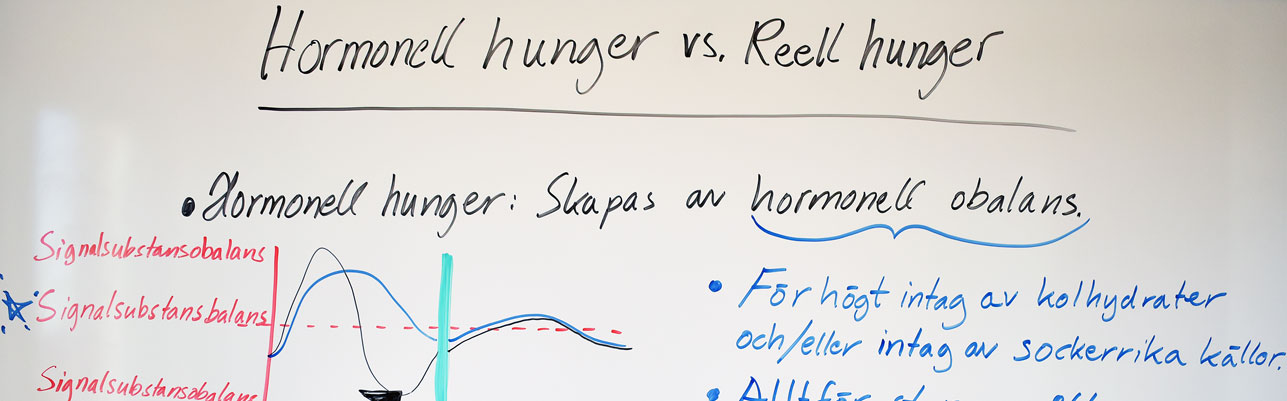 Hormonell hunger vs. Reell hunger
• Hormonell hunger: Skapas av hormonell obalans.
Signalsubstansobalans
Signalsubstansbalans
Signalsubstansobalans
• För högt intag av kolhydrater
och/eller intag av sockerrika källor.
• Alltför